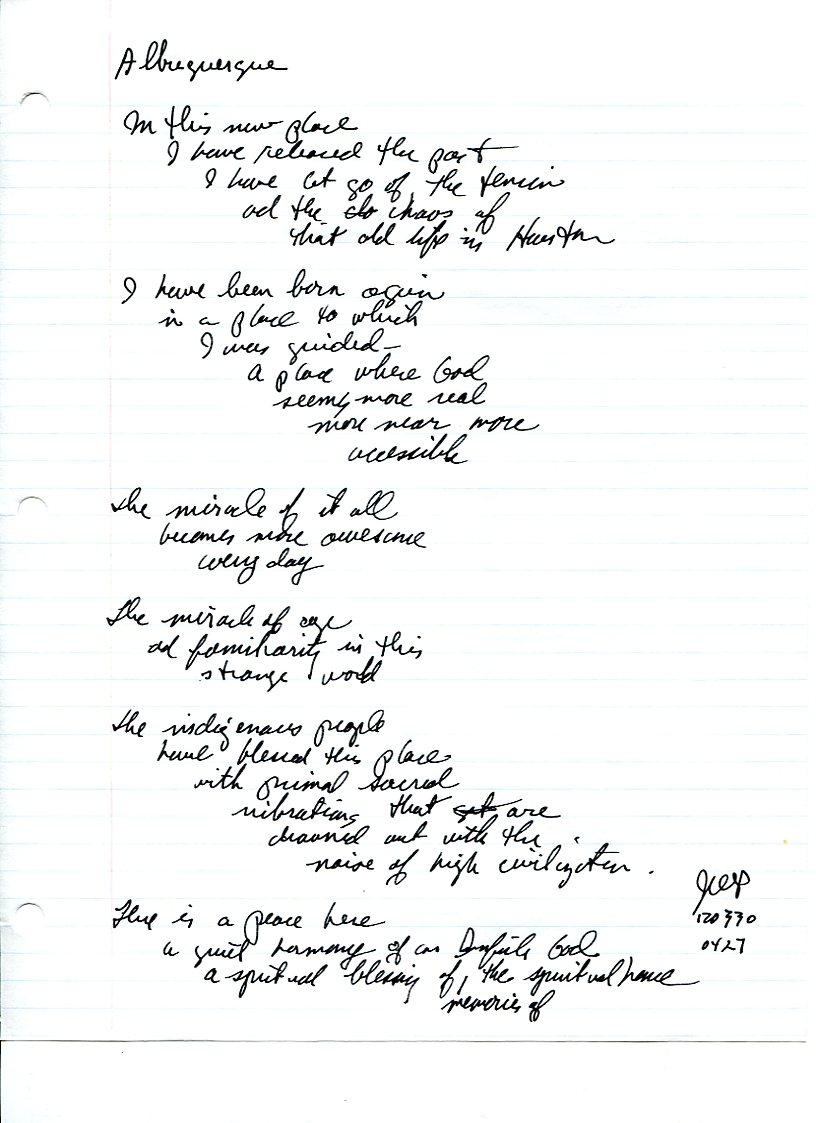 Albuquerque
In this new place
I have released the past
I have let go of the tension
ad the chaos of
that old life in Houston
I have been born again
in a place to which
I was guided–
a place where God
seems more real
more near more
accessible
the miracle of it all
becomes more awesome
every day
the miracle of age
ad familiarity in this
strange world
the indigenous people
have blessed this place
with primal sacred
vibrations that are
drowned out with the
noise of high civilization.
There is a peace here
a quiet harmony of an Infinite God
a spiritual blessing of, the spiritual home
memories of
120330
0427